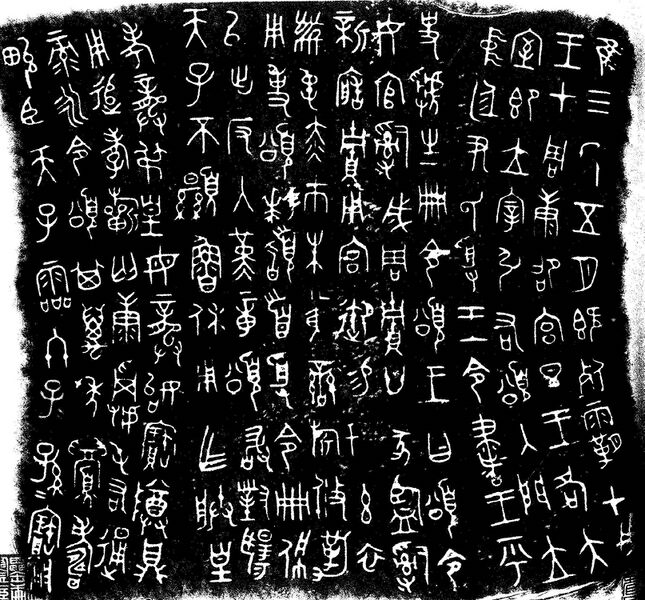 隹三年五月既死霸甲戌
王才周康邵宮旦王各大
室即立宰引右頌入門立
中廷尹氏受王令書王乎
史虢生冊令頌王曰頌令
女官𤔲成周貯廿家監𤔲
新造貯用宮御易女玄衣
黹屯赤巿朱黃䜌旂攸勒
用事頌拜𩒨首受令冊佩
以出反入堇章頌敢對揚
天子不顯魯休用乍朕皇
考龏弔皇母龏始寶尊鼎
用追孝祈匄康𩛥屯右通
彔永令頌其萬年眉壽
畯臣天子霝冬子孫=寶用